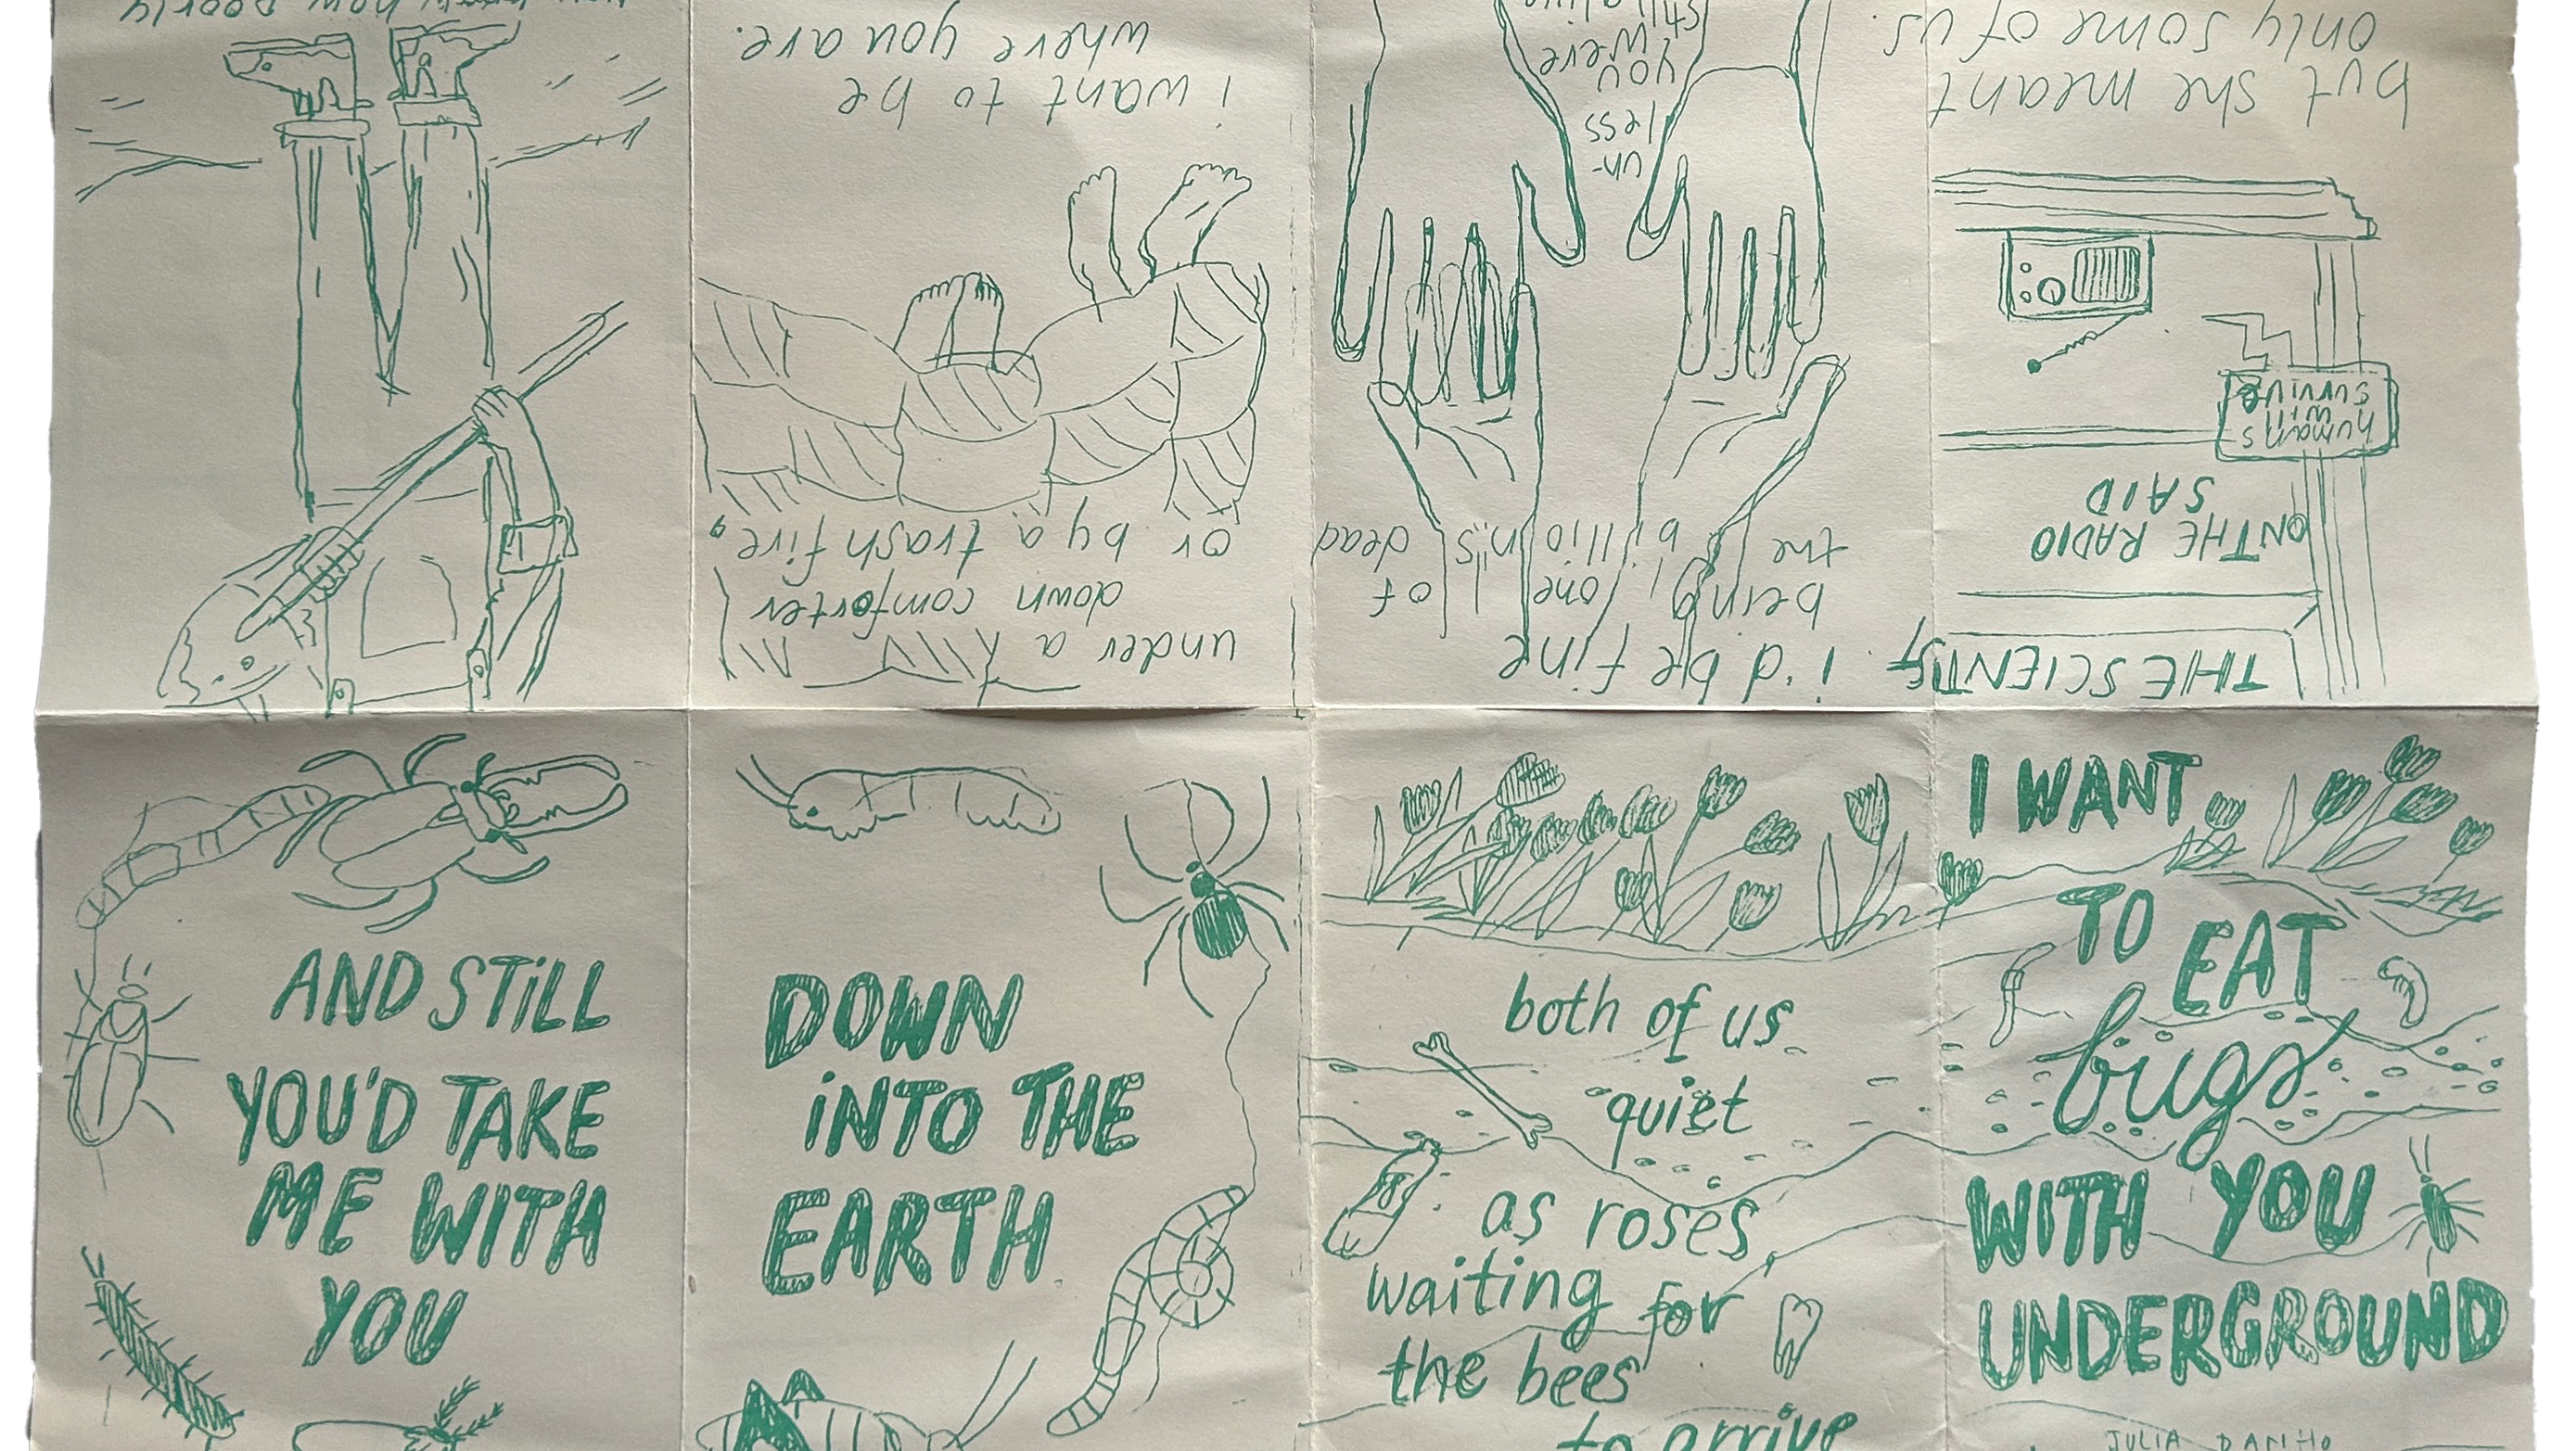 I WANT
TO EAT
bugs
WITH YOU
UNDERGROUND
JULIA
THE SCIENTIST
ON THE RADIO
SAID
humans
will
survive
but she meant
only some of us.
i'd be fine
being one of
the billions dead
un-
less
you
were
still alive
under a
down comforter
or by a trash fire,
i want to be
where you are.
how poorly
AND STILL
YOU'D TAKE
ME WITH
YOU
DOWN
INTO THE
EARTH
both of us
quiet
as roses
waiting for
the bees
to arrive